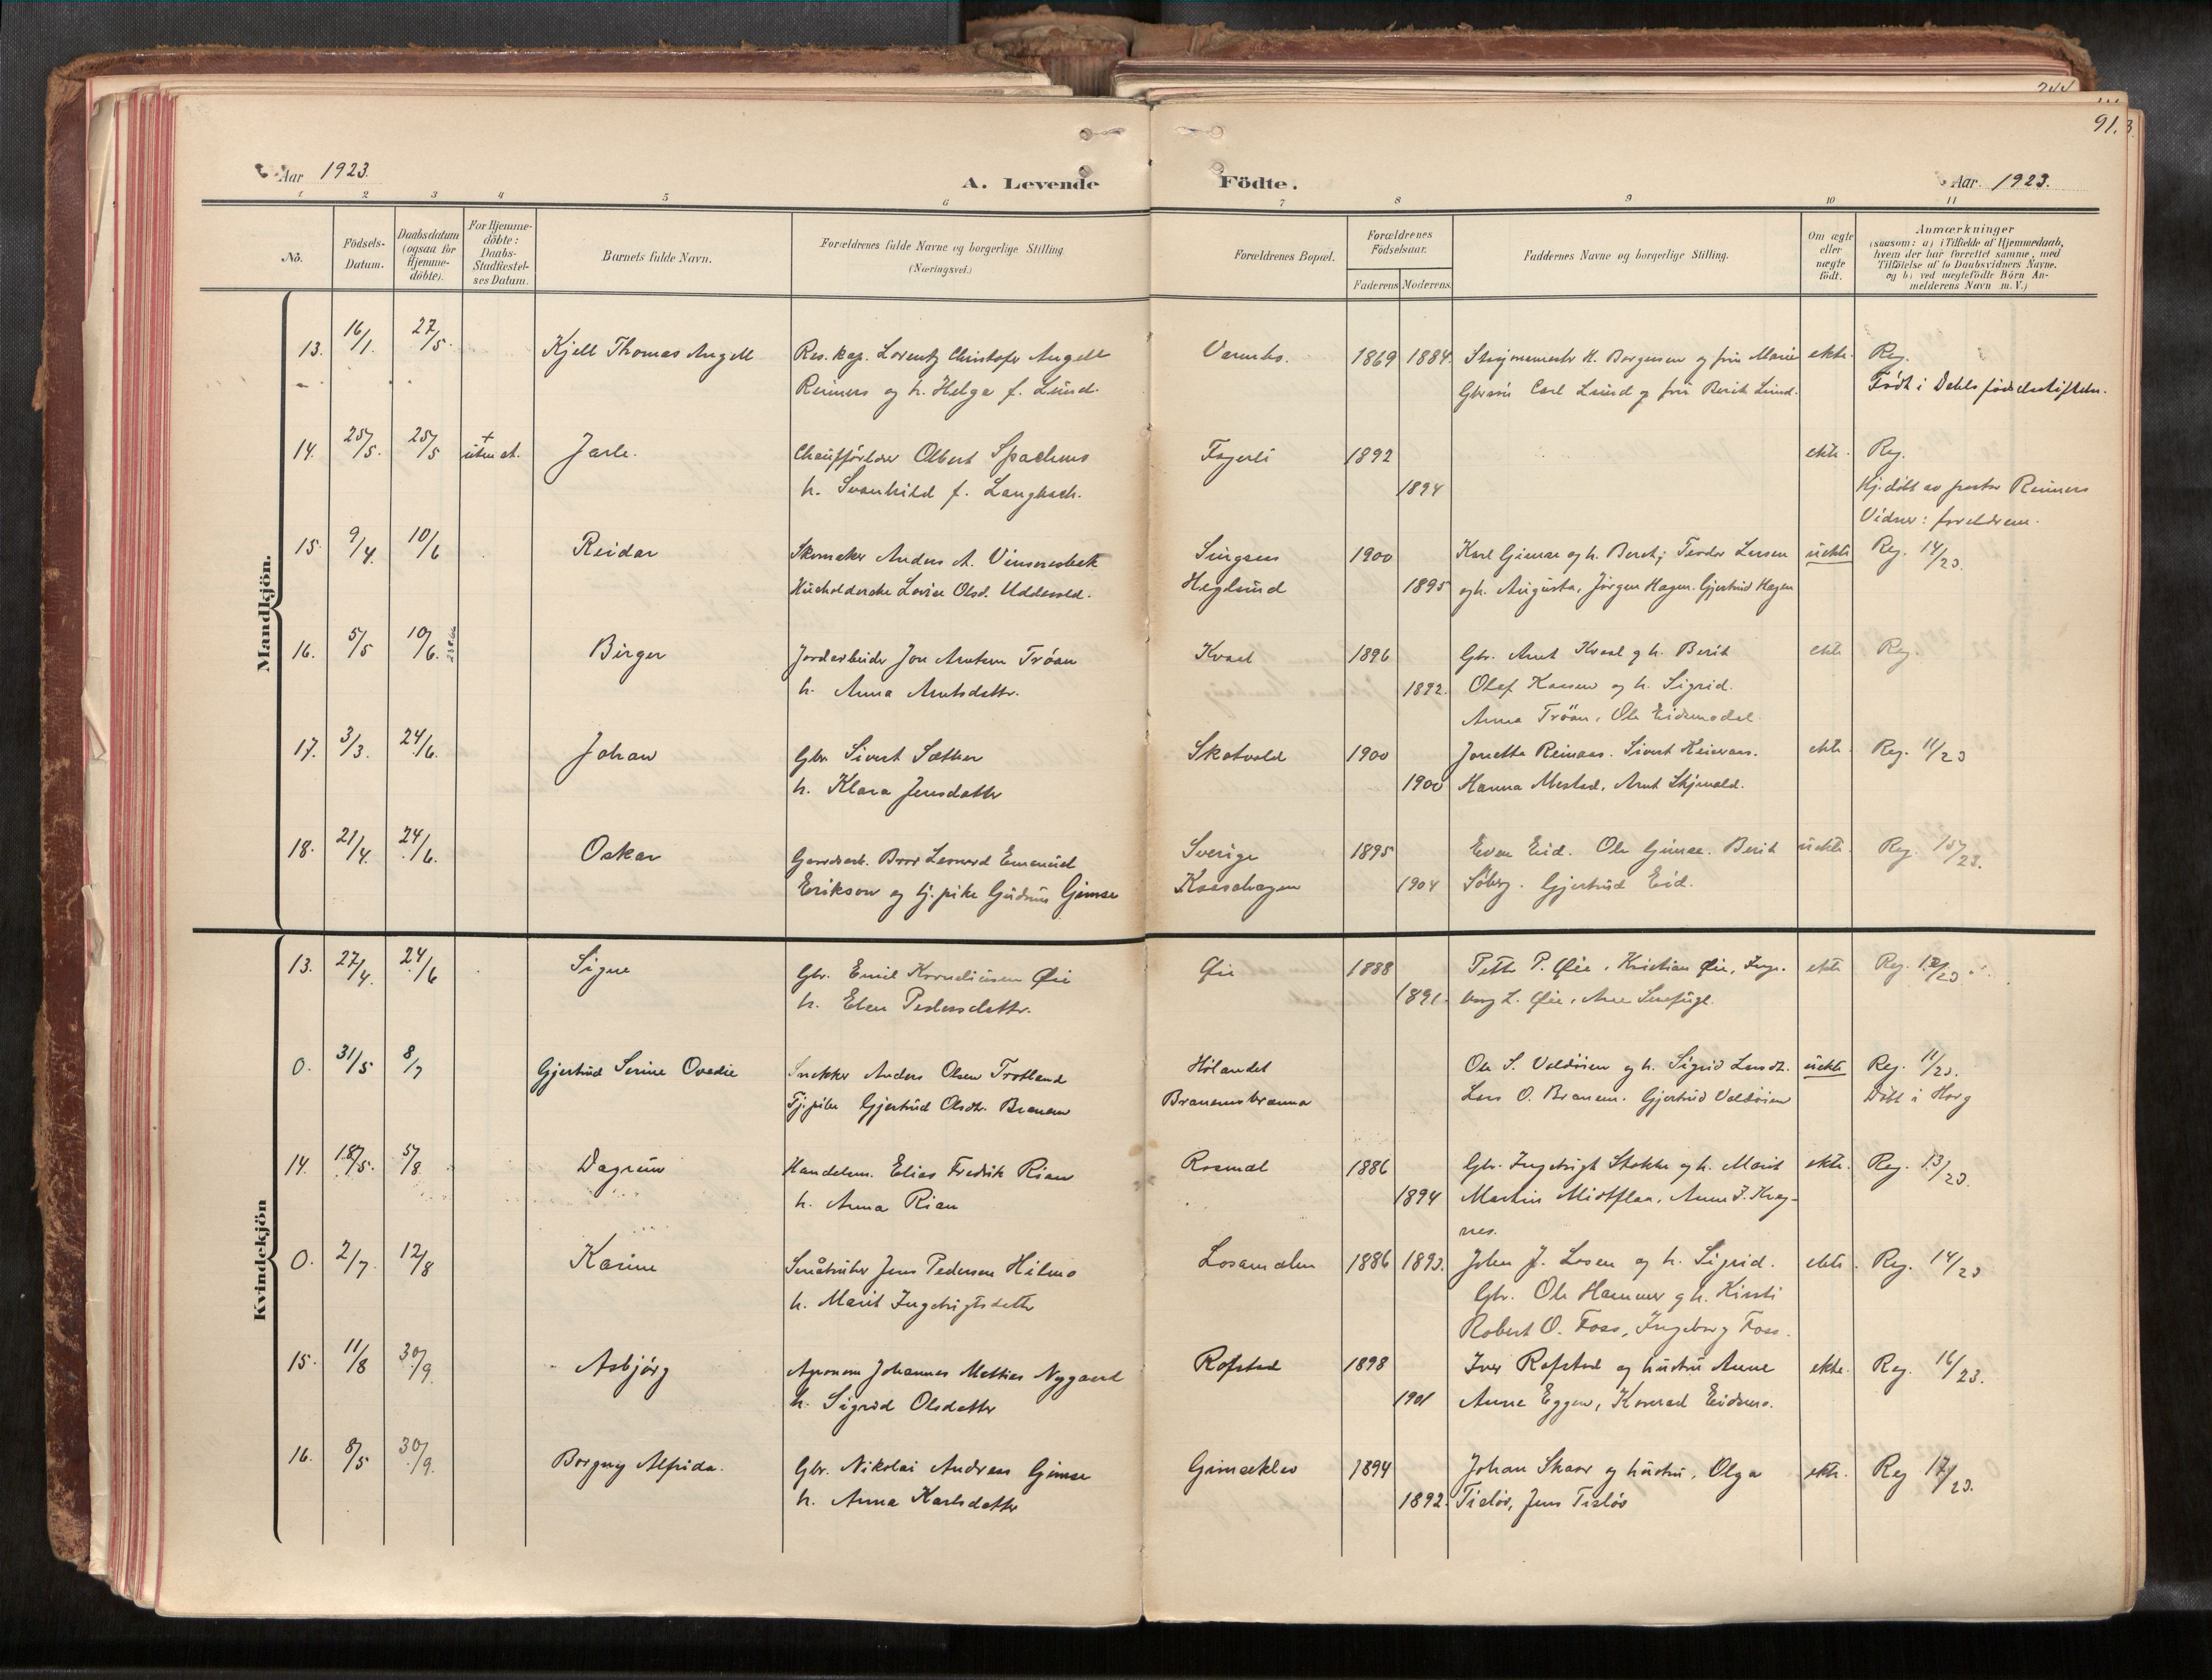 91.
Aar 1923.
A. Levende Födte.
Aar 1923.
1 2 3 4 5 6 7 8 9 10 11
No.
Födsels-Datum.
Daabsdatum (ogsaa for Hjemme-döbte).
For Hjemme-döbte: Daabs-Stadfæstel-ses Datum.
Barnets fulde Navn.
Forældrenes fulde Navne og borgerlige Stilling
(Næringsvei.)
Forældrenes Bopæl.
Forældrenes Födselsaar.
Faderens Moderens
Faddernes Navne og borgerlige Stilling.
Om ægte eller uægte födt.
Anmærkninger
(saasom: a) i Tilfælde af Hjemmedaab,
hvem der har forrettet samme, med
Tilföielse af to Daabsvidners Navne.
og b) ved uægtefödte Börn An-
melderens Navn m. V.)
Mandkjön.
13. 16/1. 27/5. Kjell Thomas Angell Res. kap. Lorentz Christofer Angell 1869 1884. H. Borgersen og fru Marie ekte. Reg.
Reimers og h. Helga f. Lund. Carl Lund og fru Berit Lund. Født i Dahls fødselsstiftelse.
14. 25/5. 25/5 + Jarle. Olbert Fagerli 1892 ekte. Reg.
h. Svanhild f. 1894 Hj.døbt av pastor Reimers
Vidner: foreldrene.
15. 9/4. 10/6 Reidar Skomaker Anders A. Vinsnesbak 1900 Karl Gimse og h. Berit; Teodor Larsen uekte Reg. 14/23.
Lovise Olsd. Uddevold. Heglund 1895 og h. Augusta, Jørgen Hagen. Gjertrud Hagen
16. 5/5 10/6. Birger Jordarbeider Jon Arntsen Trøan Kvaal 1896 Gbr. Arnt Kvaal og h. Berit ekte Reg.
h. Anna Arntsdatter. 1892. Olaf Kaasen og h. Sigrid.
Anna Trøan, Ole Eidsmodal
17. 3/3. 24/6. Johan Gbr. Sivert Sæther Skotvold 1900 Jonetta Reinaas. Sivert ekte. Reg. 11/23
h. Klara Jensdatter 1900 Hanna Mestad, Arnt
18. 21/4. 24/6. Oskar Gaardsarb. Bror Leonard Emanuel Sverige 1895 Even Eid. Ole Gimse. Berit uekte. Reg. 15/23.
Erikson og tj.pike Gudrun Gimse Kaashagen 1904 Søberg. Gjertrud Eid.
Kvindekjön
13. 27/4. 24/6 Signe Gbr. Emil Korneliussen Øie Øie 1888 Petter P. Øie, Kristian Øie, Inge- ekte Reg.
h. Elen Pedersdatter. 1891. borg L. Øie, Ane
0. 31/5 8/7 Gjertrud Serine Ovedie Snekker Anders Olsen Trotland Hølandet Ole S. Valdøien og h. Sigrid Larsdt. uekte Reg. 11/23.
Tj.pike Gjertrud Olsdtr. Branem Branemsbrænna Lars O. Branem. Gjertrud Valdøien Døbt i Horg
14. 18/5. 5/8 Dagrun Handelsm. Elias Fredrik Rian Rosmæl 1886 Gbr. Ingebrigt Stokke og h. Marit ekte. Reg. 13/23.
h. Anna Rian 1894 Martin Midtflaa, Anne J. Kvag-
nes.
0. 2/7 12/8 Karine Småbruker Jens Pedersen Hilmo Losamælen 1886 1893. John J. Losen og h. Sigrid. ekte. Reg. 14/23
h. Marit Ingebrigtsdatter Gbr. Ole Hammer og h. Kirsti
Robert O. Foss, Ingeborg Foss.
15. 11/8 30/9. Asbjørg Agronom Johannes Mathias Nygaard Rofstad 1898 Iver Rofstad og hustru Anne ekte. Reg. 16/23.
h. Sigrid Olsdatter 1901 Anne Eggen, Konrad Eidsmo.
16. 8/5 30/9. Borgny Alfrida. Gbr. Nikolai Andreas Gimse Gimseklev 1894 Johan Skaar og hustru, Olga ekte. Reg 17/23.
h. Anna Karlsdatter 1892. Tisløv, Jens Tisløv